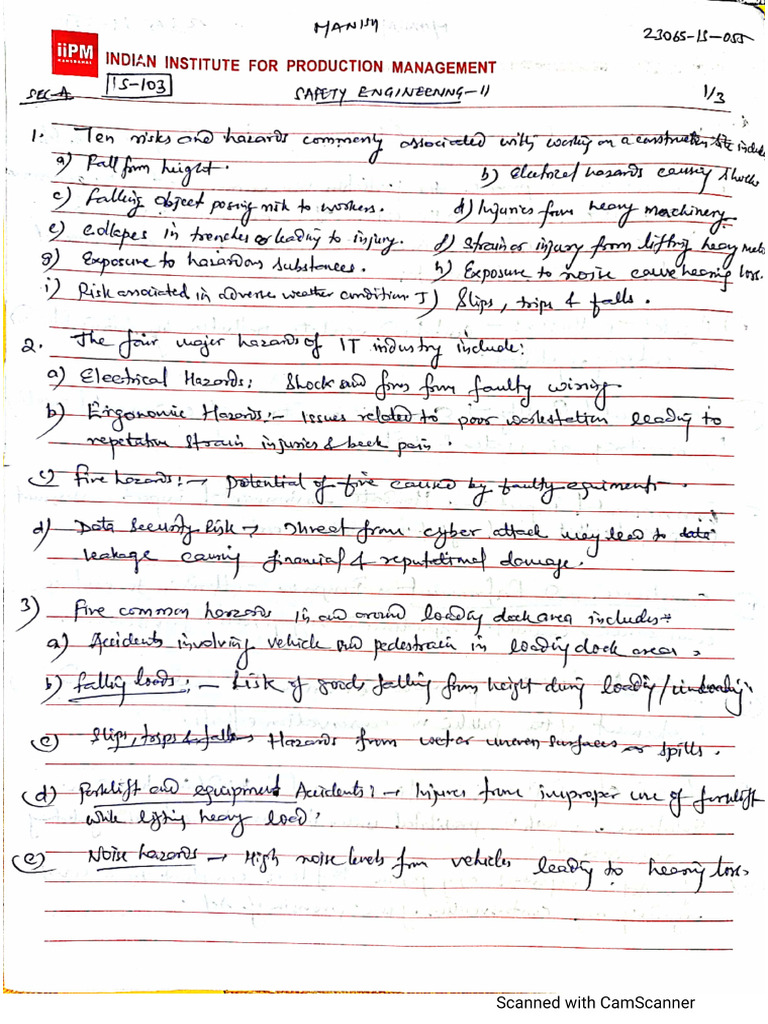 MANISH
23065-IS-055
iiPM
KANSBAHAL
INDIAN INSTITUTE FOR PRODUCTION MANAGEMENT
SEC-A
IS-103
SAFETY ENGINEERING-II
1/3
1. Ten risks and hazards commonly associated with working on a construction site include
a) Fall from height.
b) Electrical hazards causing shocks
c) Falling object posing risk to workers.
d) Injuries from heavy machinery.
e) Collapes in trenches leading to injury.
f) Strain or injury from lifting heavy
g) Exposure to hazardous substances.
h) Exposure to noise cause hearing loss.
i) Risk associated in adverse weather condition
J) Slips, trips & falls.
2. The four major hazards of IT industry include:
a) Electrical Hazards: Shock and fires from faulty wiring
b) Ergonomic Hazards:- Issues related to poor workstation leading to
repetative strain injuries & back pain.
c) Fire hazards:→ potential of fire caused by faulty equiments.
d) Data Security Risk → threat from cyber attack may lead to data
leakage causing financial & reputational damage.
3) Five common hazards in and around loading dock area includes:
a) Accidents involving vehicle and pedestrain in loading dock areas,
b) Falling loads:- Risk of goods falling from height during loading/unloading.
c) Slips, trips & falls → Hazards from wet or uneven surfaces or spills.
d) Forklift and equipment Accidents:→ Injures from improper use of forklift
while lifting heavy load.
e) Noise hazards → High noise levels from vehicles leading to hearing loss.
Scanned with CamScanner